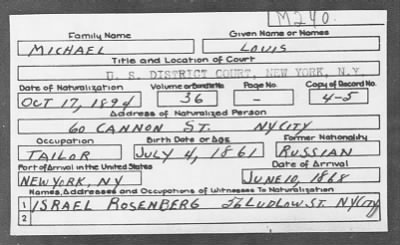 M240.
Family Name Given Name or Names
MICHAEL LOUIS
Title and Location of Court
U. S. DISTRICT COURT, NEW YORK, N.Y.
Date of Naturalization Volume or Bundle No. Page No. Copy of Record No.
OCT 17, 1894 36 - 4-5
Address of Naturalized Person
60 CANNON ST. NYCITY
Occupation Birth Date or Age Former Nationality
TAILOR JULY 4, 1861 RUSSIAN
Port of Arrival in the United States Date of Arrival
NEW YORK, NY JUNE 10, 1868
Names, Addresses and Occupations of Witnesses To Naturalization
1 ISRAEL ROSENBERG LUDLOW ST. NYCITY
2